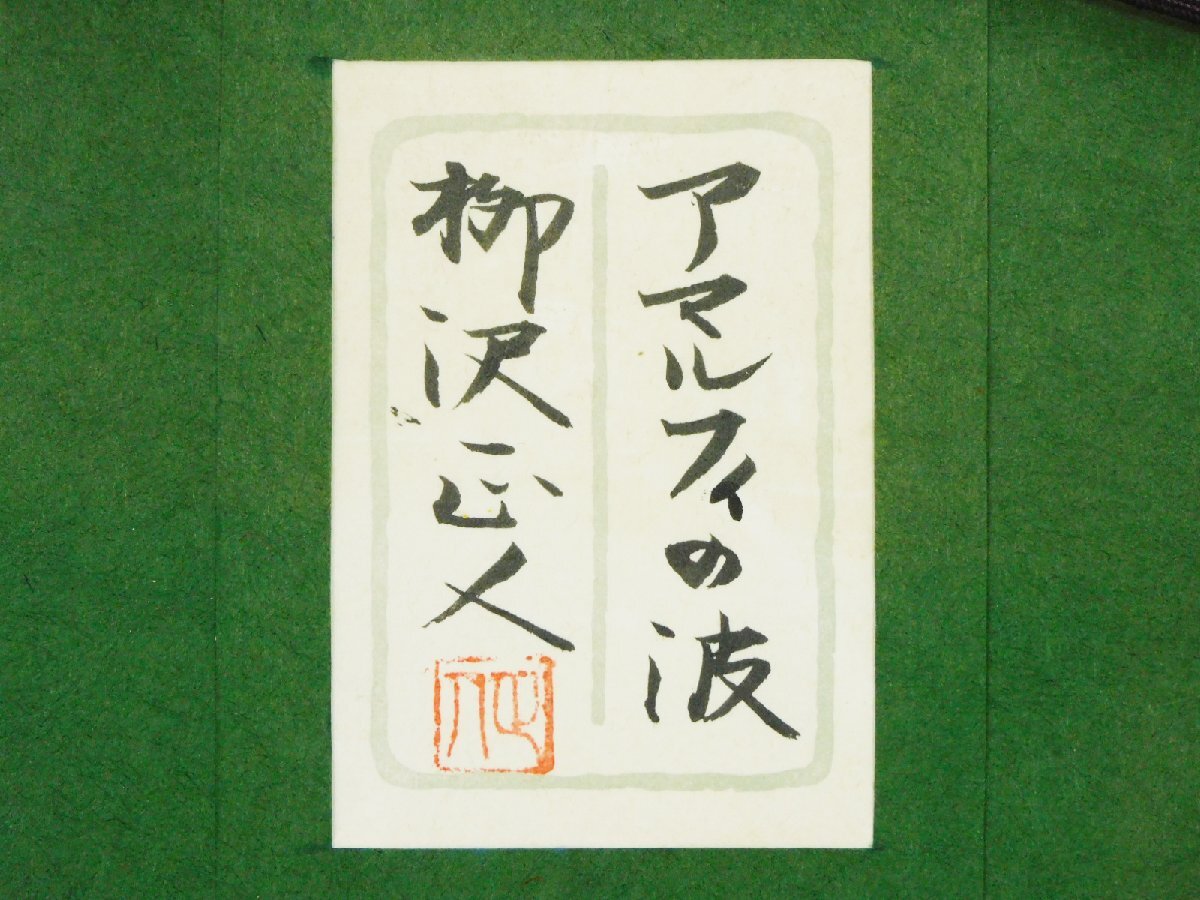 アマルフィの波
柳沢正人
正人